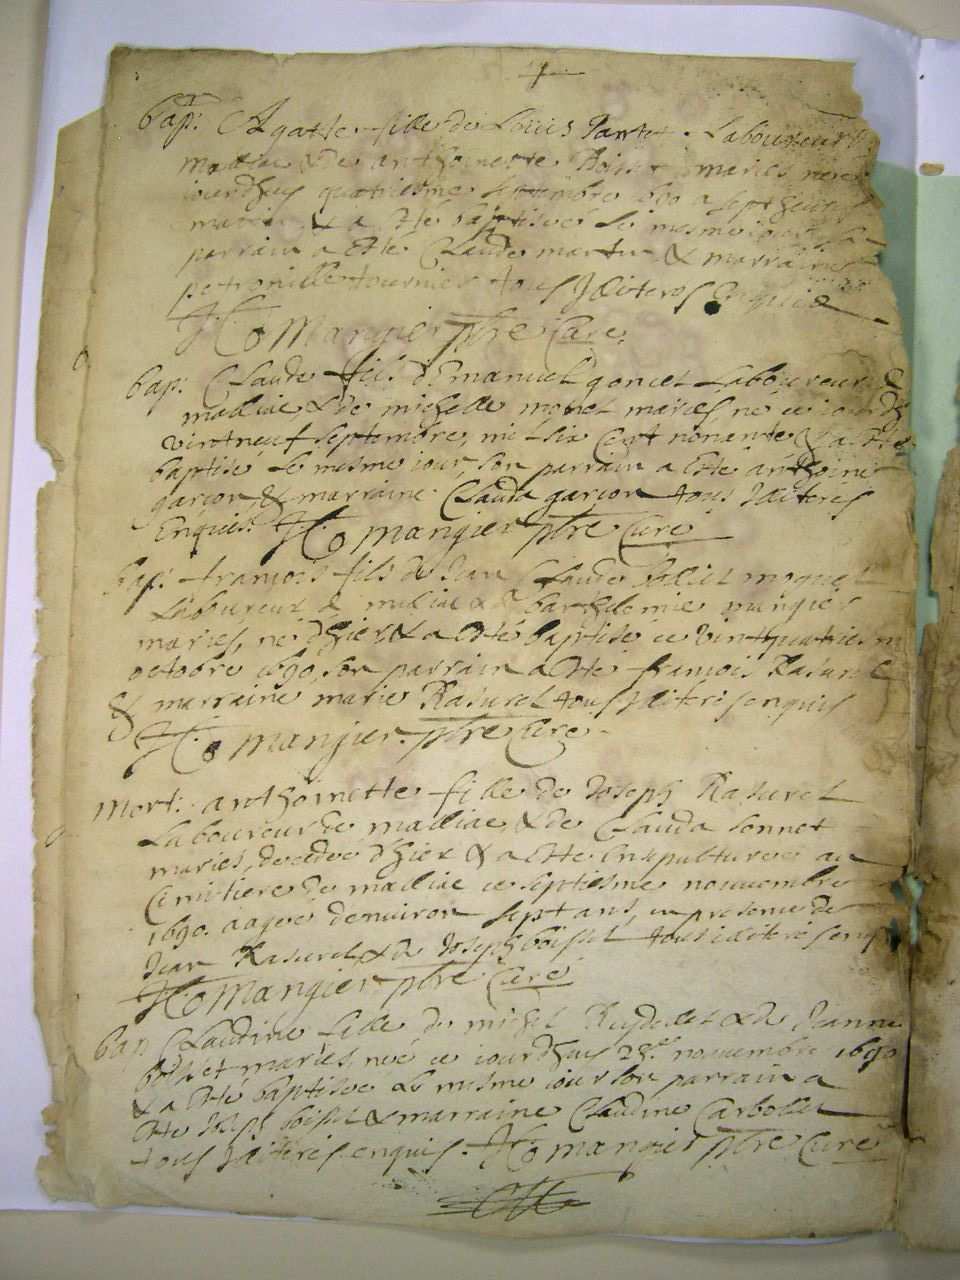 bap: Agathe fille de Louis Laboureur
mallia & de anthoinette Boisset mariés née
iourdhuy quatriesme septembre 690 a sept heures
matin & a esté baptisée le mesme iour
parrain a esté Claude martin & marraine
petronille tournier tous Illiteres Enquis
Ho Mangier pbre Curé
bap: Claude fils d'Emanuel goncet Laboureur de
malliae & de michelle monet mariés né ce iourdh
vintneuf septembre, mil six Cent nonante & a esté
baptisé le mesme iour, son parrain a esté anthoine
garçon, & marraine Clauda garçon tous Iliterés
Enquis. Ho mangier pbre Curé
bap: francois fils de Jean Claude moquet
Laboureur de malliae & de barthelemie mangier
mariés, né d'hier, & a esté baptisé ce vintquatriem
octobre 1690, son parrain a esté francois Rasurel
& marraine marie Rasurel tous Iliterés enquis
Ho mangier pbre Curé
Mort: anthoinette fille de Joseph Rasurel
Laboureur de malliae & de Clauda sonnet
mariés, decedée d'hier & a esté ensepulturee au
Cemitiere de malliae ce septiesme nouvembre
1690. aagée d'environ sept ans, en presence de
Jean Rasurel & de Joseph boisset tous illiteré s enq
Ho Mangier pbre Curé
bap Claudine fille de michel & de Jeanne
boisset mariés née ce iourdhuy 28e nouvembre 1690
& a esté baptisee le mesme iour son parrain a
esté Joseph boisset & marraine Claudine Carbollet
tous Iliterés enquis. Ho mangier pbre Curé